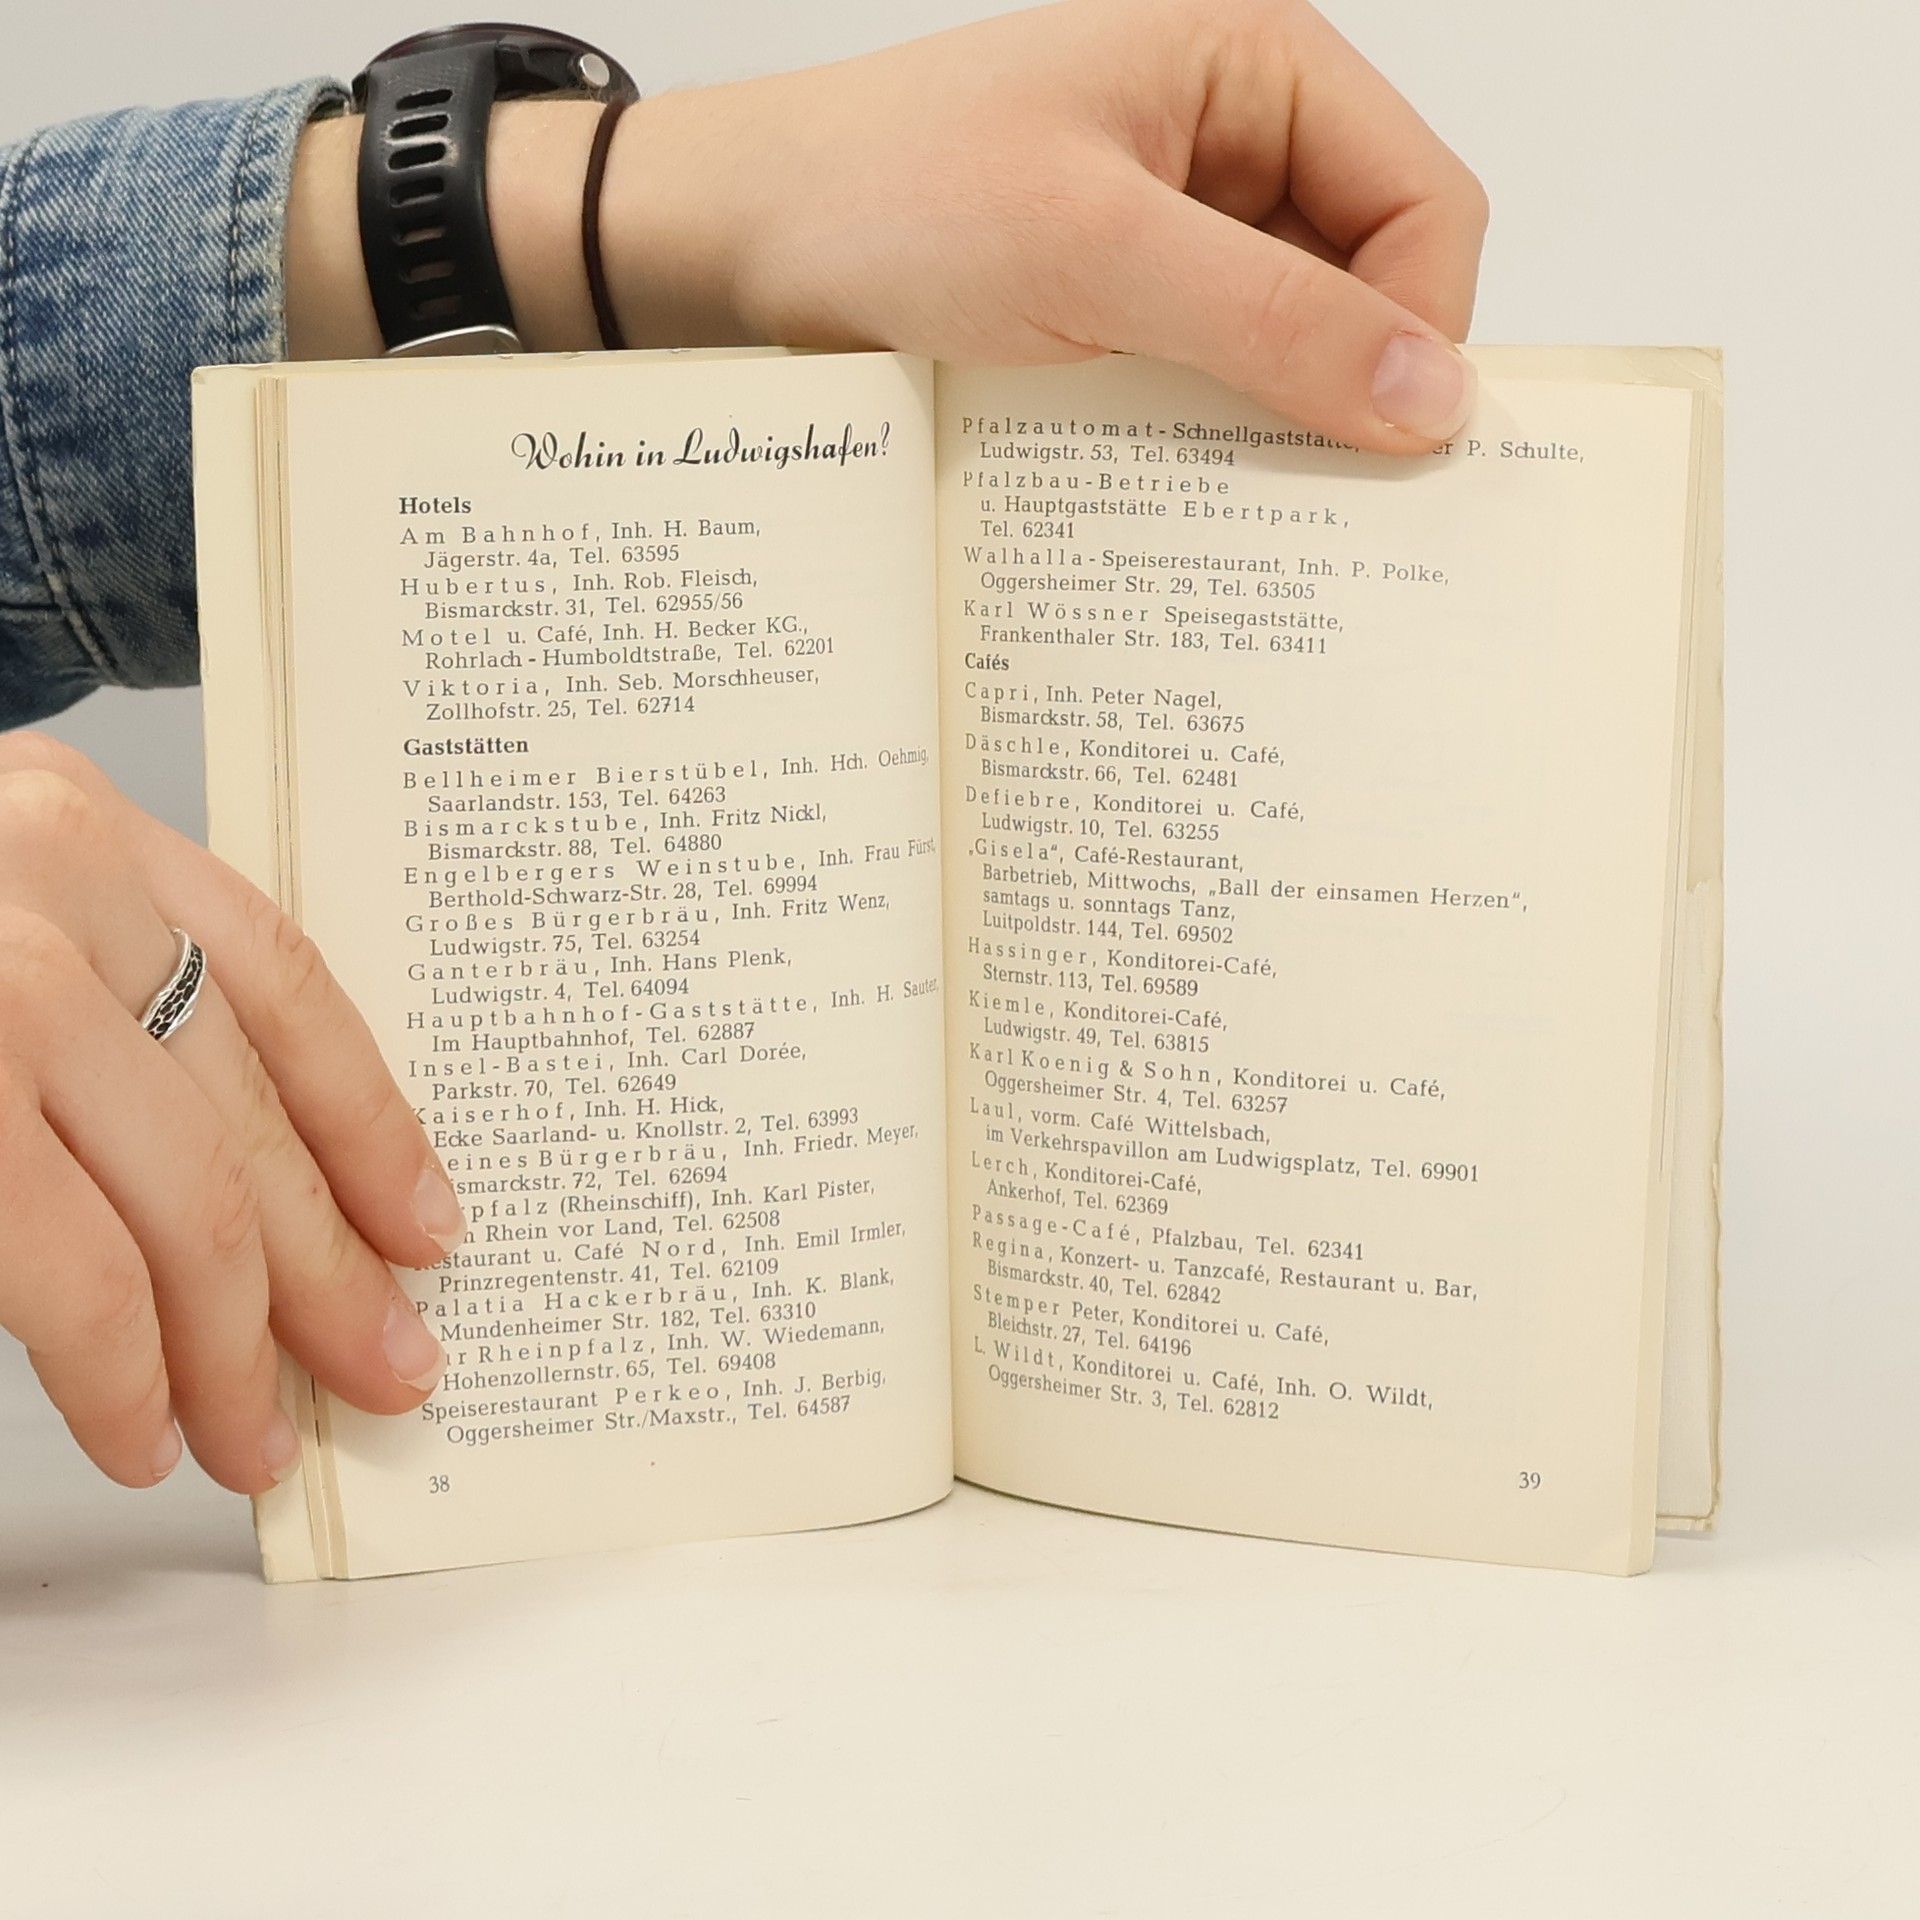 Wohin in Ludwigshafen?
Hotels
Am Bahnhof, Inh. H. Baum,
Jägerstr. 4a, Tel. 63595
Hubertus, Inh. Rob. Fleisch,
Bismarckstr. 31, Tel. 62955/56
Motel u. Café, Inh. H. Becker KG.,
Rohrlach - Humboldtstraße, Tel. 62201
Viktoria, Inh. Seb. Morschheuser,
Zollhofstr. 25, Tel. 62714
Gaststätten
Bellheimer Bierstübel, Inh. Hch. Oehmig,
Saarlandstr. 153, Tel. 64263
Bismarckstube, Inh. Fritz Nickl,
Bismarckstr. 88, Tel. 64880
Engelbergers Weinstube, Inh. Frau Fürst,
Berthold-Schwarz-Str. 28, Tel. 69994
Großes Bürgerbräu, Inh. Fritz Wenz,
Ludwigstr. 75, Tel. 63254
Ganterbräu, Inh. Hans Plenk,
Ludwigstr. 4, Tel. 64094
Hauptbahnhof-Gaststätte, Inh. H. Sauter,
Im Hauptbahnhof, Tel. 62887
Insel-Bastei, Inh. Carl Dorée,
Parkstr. 70, Tel. 62649
Kaiserhof, Inh. H. Hick,
Ecke Saarland- u. Knollstr. 2, Tel. 63993
eines Bürgerbräu, Inh. Friedr. Meyer,
ismarckstr. 72, Tel. 62694
rpfalz (Rheinschiff), Inh. Karl Pister,
Rhein vor Land, Tel. 62508
Restaurant u. Café Nord, Inh. Emil Irmler,
Prinzregentenstr. 41, Tel. 62109
Palatia Hackerbräu, Inh. K. Blank,
Mundenheimer Str. 182, Tel. 63310
ur Rheinpfalz, Inh. W. Wiedemann,
Hohenzollernstr. 65, Tel. 69408
Speiserestaurant Perkeo, Inh. J. Berbig,
Oggersheimer Str./Maxstr., Tel. 64587
38
Pfalzautomat - Schnellgaststätte, P. Schulte,
Ludwigstr. 53, Tel. 63494
Pfalzbau-Betriebe
u. Hauptgaststätte Ebertpark,
Tel. 62341
Walhalla - Speiserestaurant, Inh. P. Polke,
Oggersheimer Str. 29, Tel. 63505
Karl Wössner Speisegaststätte,
Frankenthaler Str. 183, Tel. 63411
Cafés
Capri, Inh. Peter Nagel,
Bismarckstr. 58, Tel. 63675
Däschle, Konditorei u. Café,
Bismarckstr. 66, Tel. 62481
Defiebre, Konditorei u. Café,
Ludwigstr. 10, Tel. 63255
„Gisela“, Café-Restaurant,
Barbetrieb, Mittwochs, „Ball der einsamen Herzen“,
samtags u. sonntags Tanz,
Luitpoldstr. 144, Tel. 69502
Hassinger, Konditorei-Café,
Sternstr. 113, Tel. 69589
Kiemle, Konditorei-Café,
Ludwigstr. 49, Tel. 63815
Karl Koenig & Sohn, Konditorei u. Café,
Oggersheimer Str. 4, Tel. 63257
Laul, vorm. Café Wittelsbach,
im Verkehrspavillon am Ludwigsplatz, Tel. 69901
Lerch, Konditorei-Café,
Ankerhof, Tel. 62369
Passage-Café, Pfalzbau, Tel. 62341
Regina, Konzert- u. Tanzcafé, Restaurant u. Bar,
Bismarckstr. 40, Tel. 62842
Stemper Peter, Konditorei u. Café,
Bleichstr. 27, Tel. 64196
L. Wildt, Konditorei u. Café, Inh. O. Wildt,
Oggersheimer Str. 3, Tel. 62812
39